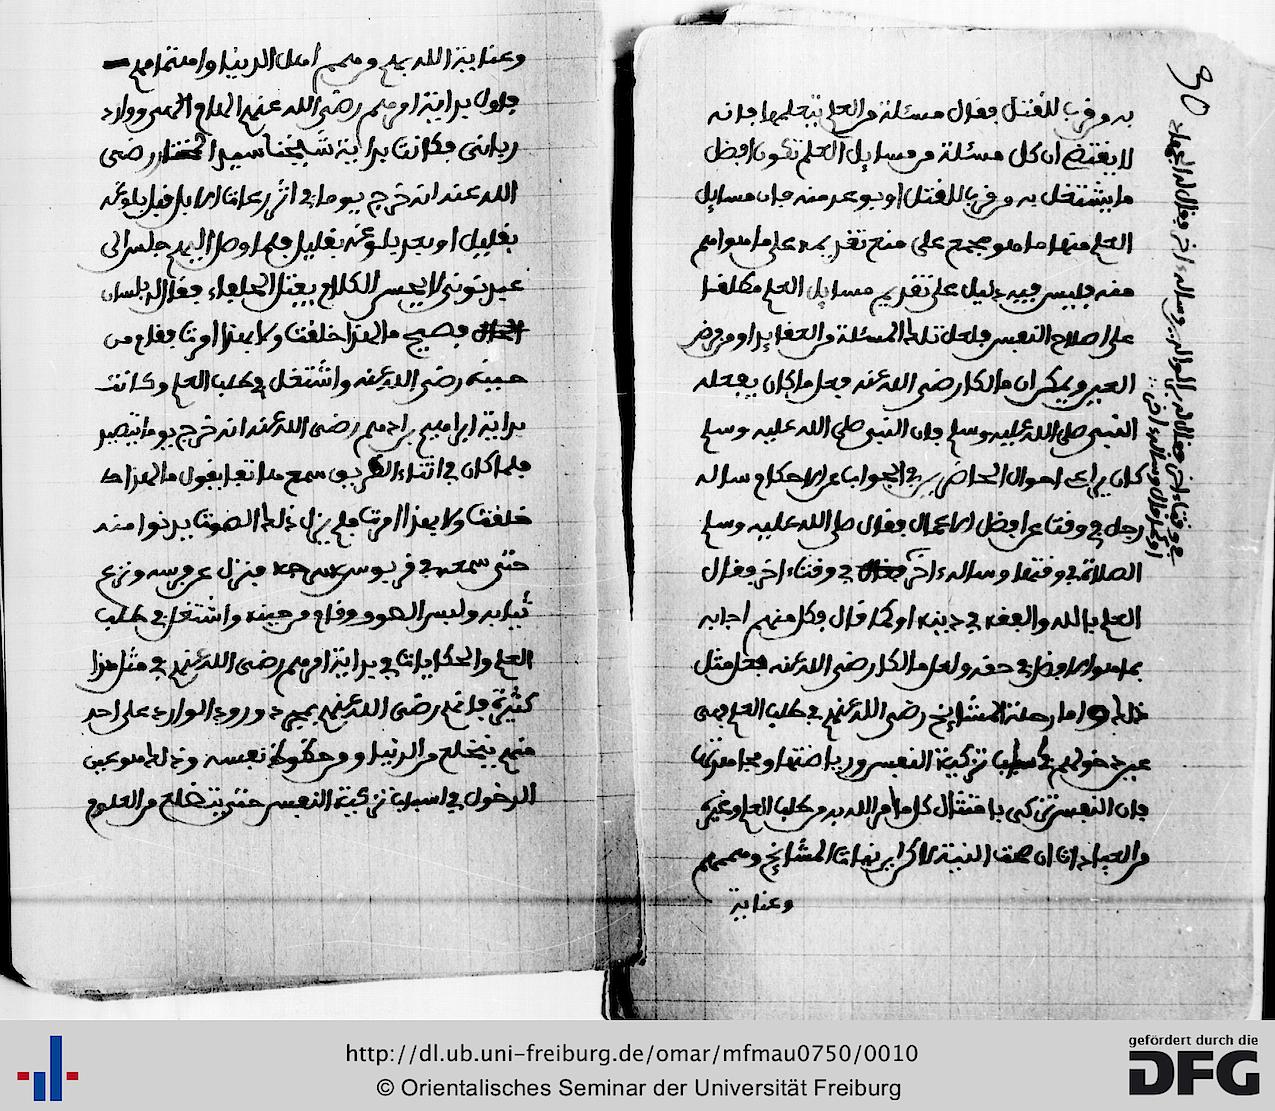 به وقرب للقتل فقال مسئلة من العلم تتعلمها فإنه
لا يقتضي ان كل مسئلة من مسايل العلم تكون افضل
ما يشتغل به من قرب للقتل او بوعد منه فان مسايل
العلم منها ما هو مجمع على منع تقديمه على ما هو اهم
منه فليس فيه دليل على تقديم مسايل العلم مطلقا
على اصلاح النفس فلعل تلك المسئلة من العقايد او من فرض
العين ويمكن ان مالكا رضي الله عنه فعل ما كان يفعله
النبي صلى الله عليه وسلم فان النبي صلى الله عليه وسلم
كان يراعي احوال الحاضرين في الجواب عن الاحكام ساله
رجل في وقت عن افضل الاعمال فقال صلى الله عليه وسلم
الصلاة في وقتها وساله ءاخر في وقت ءاخر فقال
العلم بالله والفقه في دينه او كما قال فكل منهم اجابه
بما هو الافضل في حقه ولعل مالكا رضي الله عنه فعل مثل
ذلك واما رحلة المشايخ رضي الله عنهم في طلب العلم فهي
عين دخولهم في اسباب تزكية النفس ورياضتها ومجاهدتها
فان النفس تزكى بامتثال كل ما امر الله به من طلب العلم وغيره
من العبادات ان صحت النية لاكن ابدنهايات المشايخ وهممهم
وعناية
30
ءاخر فقال له الجهاد
في وقت ءاخر فقال له بر الوالدين وساله ءاخر
او كما قال وساله ءاخر
وعناية الله بهم وهمم اهل الدنيا واهتمامهم
فاول بداية امرهم رضي الله عنهم الهام الهي ووارد
رباني فكانت بداية شيخنا سيد المختار رضي
الله عنه انه خرج يوما في اثر رعات الابل قبل بلوغه
بقليل او بعد بلوغه بقليل فلما وصل اليهم جلس الى
عبد نوبي لا يحسن الكلام يفتل الحلفاء فقال له بلسان
فصيح ما لهذا خلقت ولا بهذا امرت فقام من
حينه رضي الله عنه واشتغل في طلب العلم وكانت
بداية ابراهيم بن ادهم رضي الله عنه انه خرج يوما يتصيد
فلما كان في اثناء الطريق سمع هاتفا يقول ما لهذا
خلقت ولا بهذا امرت فلم يزل ذلك الصوت يدنوا منه
حتى سمعه في قربوس سرجه فنزل عن فرسه ونزع
ثيابه ولبس الصوف وقام من حينه واشتغل في طلب
العلم والحكايات في بداية امرهم رضي الله عنهم في مثل هذا
كثيرة فانهم رضي الله عنهم بمجرد ورود الوارد على احد
منهم ينخلع من الدنيا ومن حظوظ نفسه وذلك هو عين
الدخول في اسباب تزكية النفس حتى يتضلع من العلوم
http://dl.ub.uni-freiburg.de/omar/mfmau0750/0010
© Orientalisches Seminar der Universität Freiburg
gefördert durch die
DFG